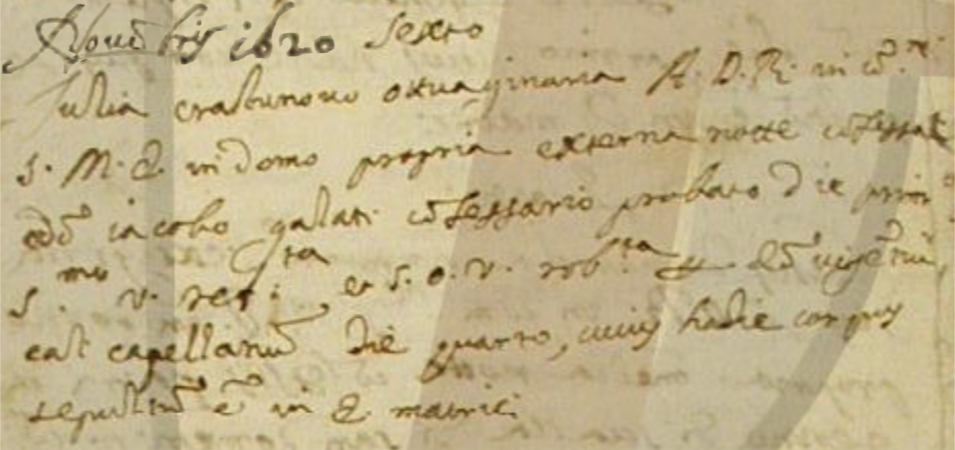 Novẽbris 1620 sexto
Iulia crastunovo ottuaginaria A. D. R. in cõ.ne
S. M. E. in domo propria externa notte cõfessa
dõ iacobo galati cõfessario probato die primo
S.mo v. ref.ta, et S. O. V. rob.ta p dõ
cast capellanũ die quarto, cuius hodie corpus
sepultũ ẽ in E. matrici